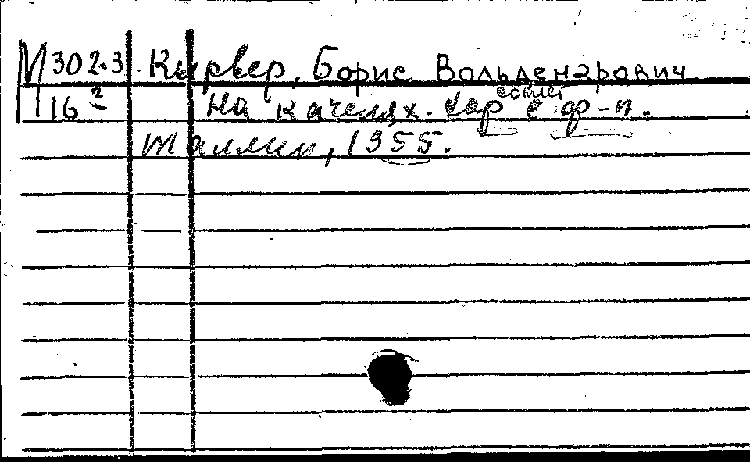 М 302.3 Кырвер, Борис Вольдемарович
16 2 На качелях. Хор с ф-п.
Таллин, 1955.